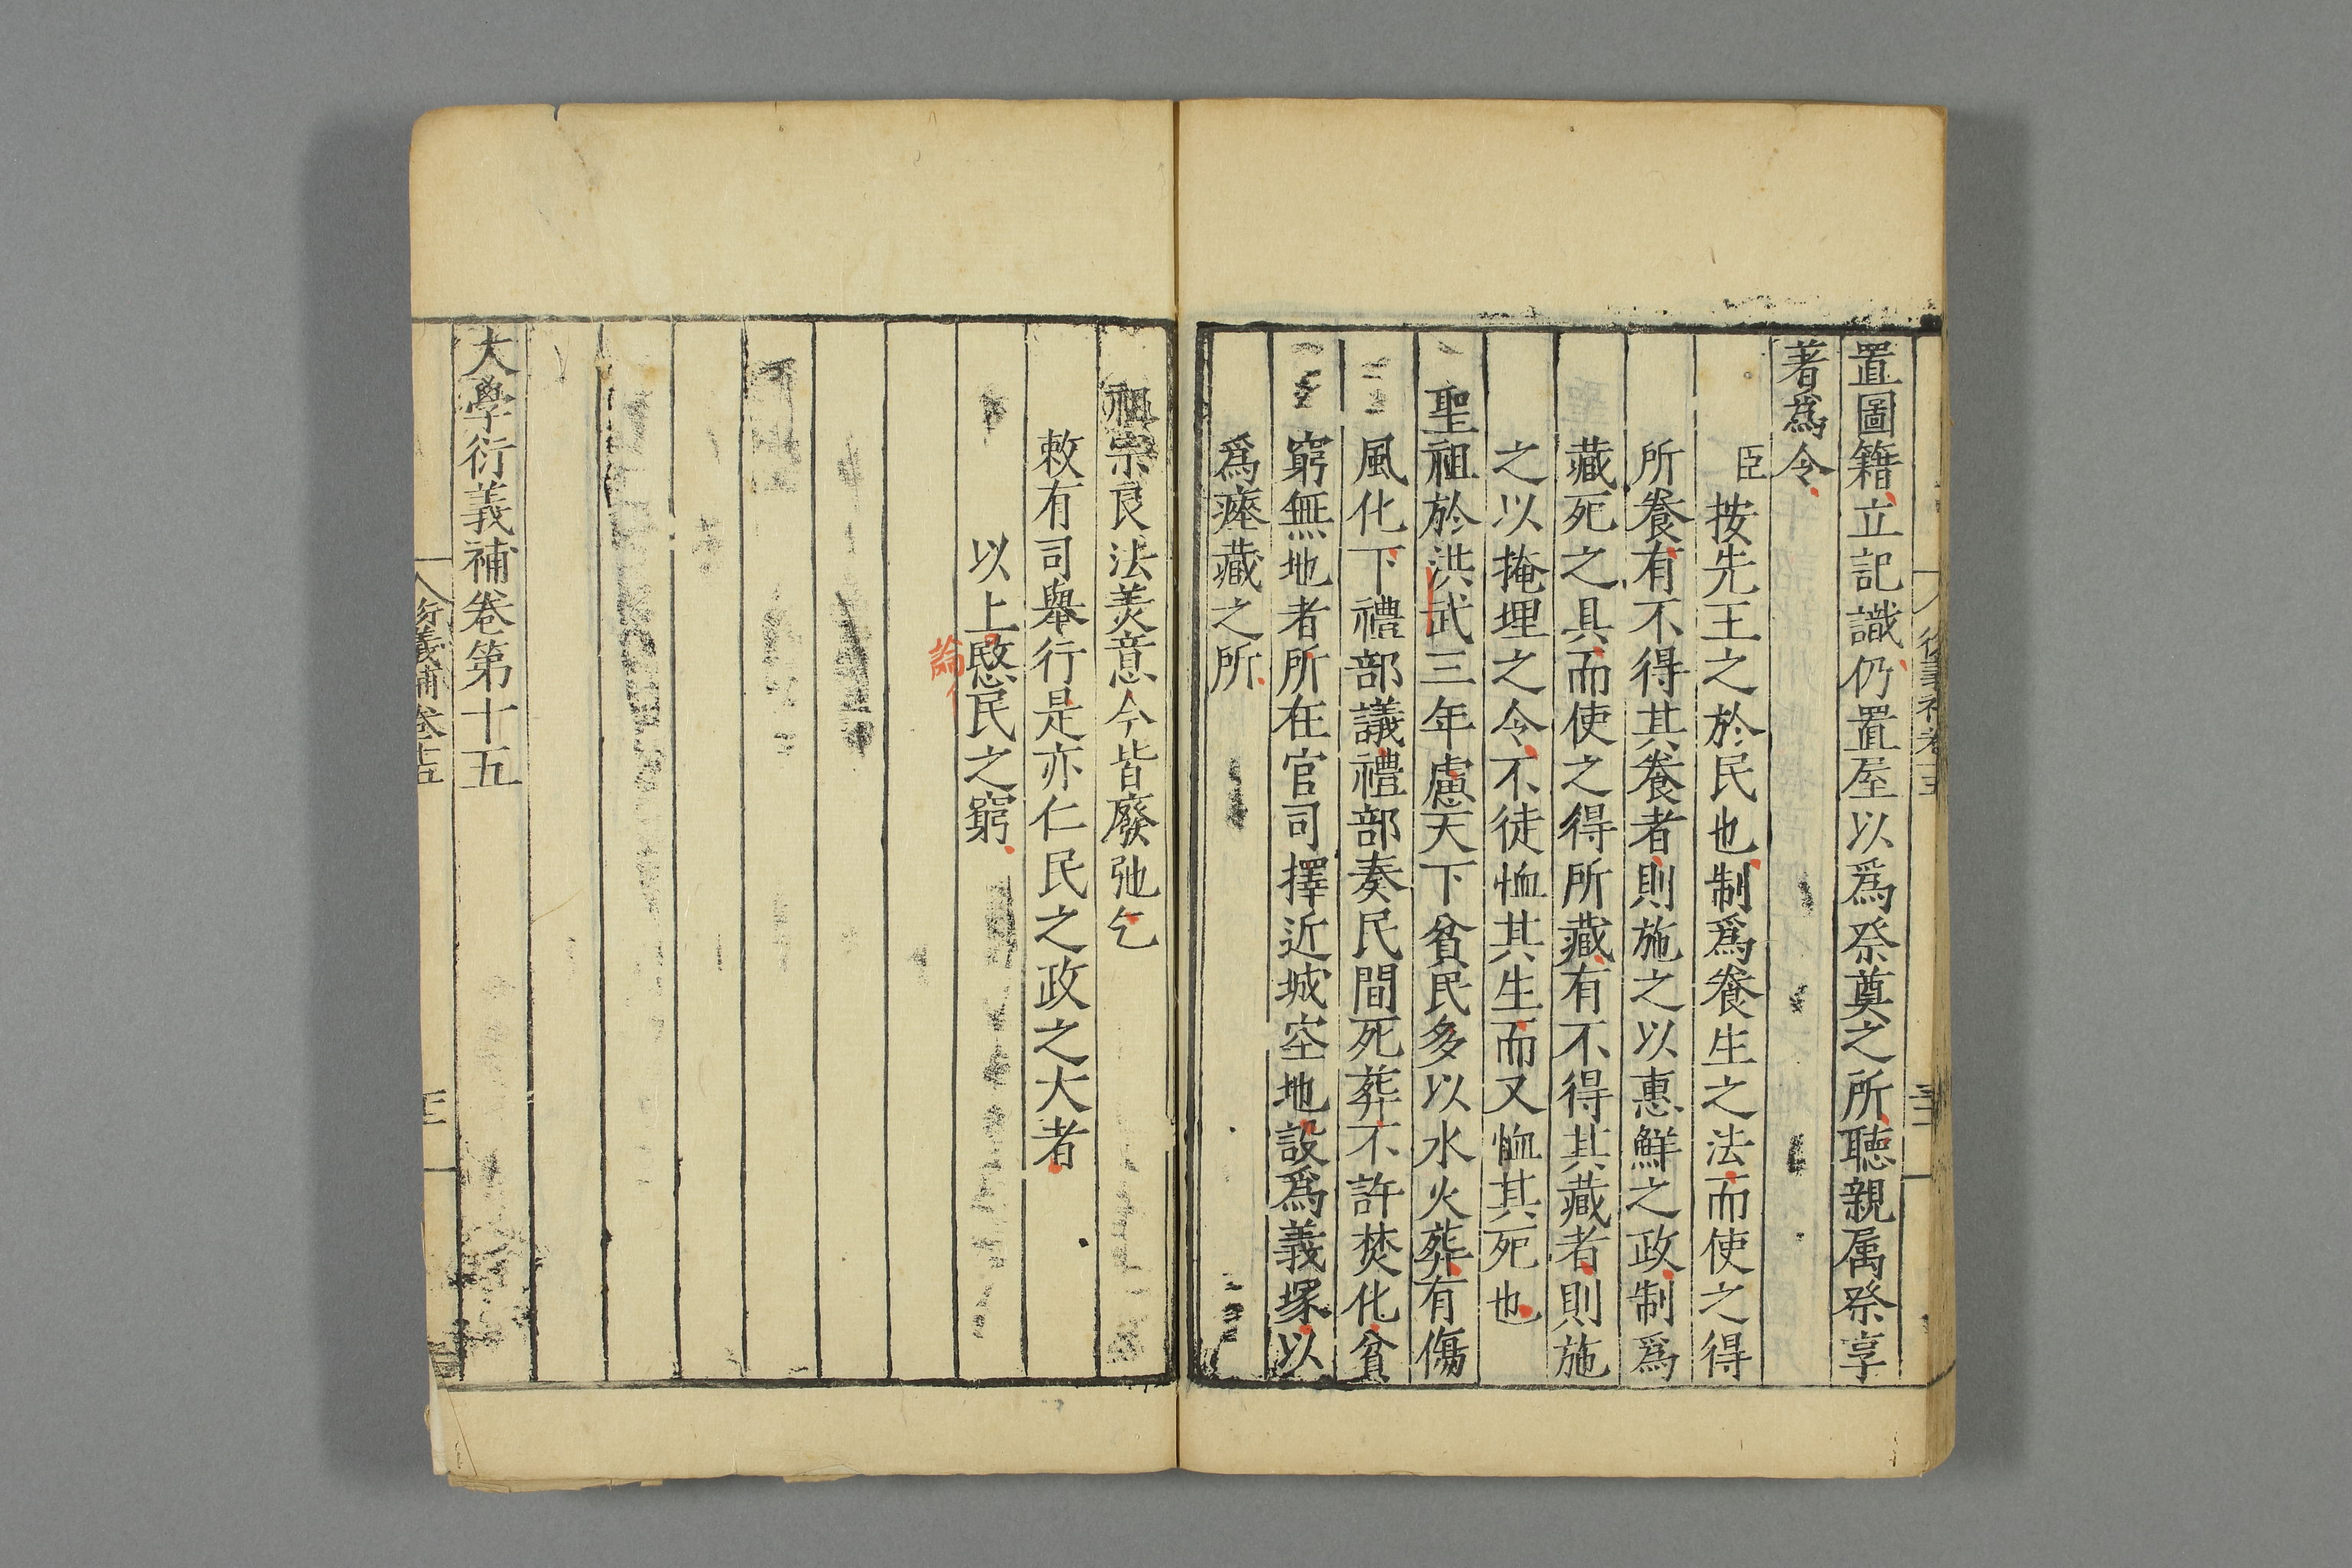 置圖籍立記識仍置屋以爲祭奠之所聽親属祭享
著爲令
臣按先王之於民也制爲養生之法而使之得
所養有不得其養者則施之以惠鮮之政制爲
藏死之具而使之得所藏有不得其藏者則施
之以掩埋之令不徒恤其生而又恤其死也
聖祖於洪武三年慮天下貧民多以水火葬有傷
風化下禮部議禮部奏民間死葬不許焚化貧
窮無地者所在官司擇近城空地設爲義塚以
爲瘞藏之所
祖宗良法美意今皆廢弛乞
敕有司舉行是亦仁民之政之大者
以上愍民之窮
論
大學衍義補卷第十五
衍義補卷十五